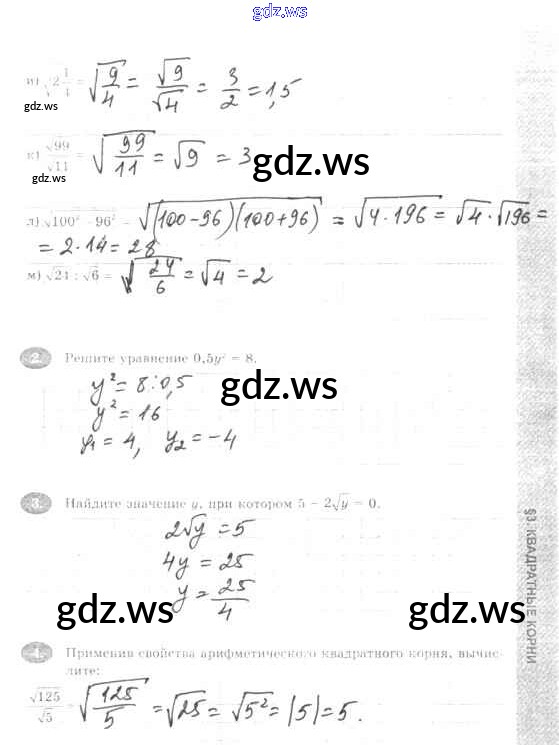 gdz.ws
и) √2 1/4 = √(9/4) = √9/√4 = 3/2 = 1,5
gdz.ws
к) √99/√11 = √(99/11) = √9 = 3
gdz.ws
gdz.ws
л) √(100² − 96²) = √((100−96)(100+96)) = √(4·196) = √4·√196 =
= 2·14 = 28
м) √24 : √6 = √(24/6) = √4 = 2
2. Решите уравнение 0,5y² = 8.
y² = 8:0,5
gdz.ws
y² = 16
y₁ = 4, y₂ = −4
3. Найдите значение y, при котором 5 − 2√y = 0.
2√y = 5
4y = 25
y = 25/4
gdz.ws
gdz.ws
§3. КВАДРАТНЫЕ КОРНИ
4. Применив свойства арифметического квадратного корня, вычис-
лите:
√125/√5 = √(125/5) = √25 = √5² = |5| = 5.
gdz.ws